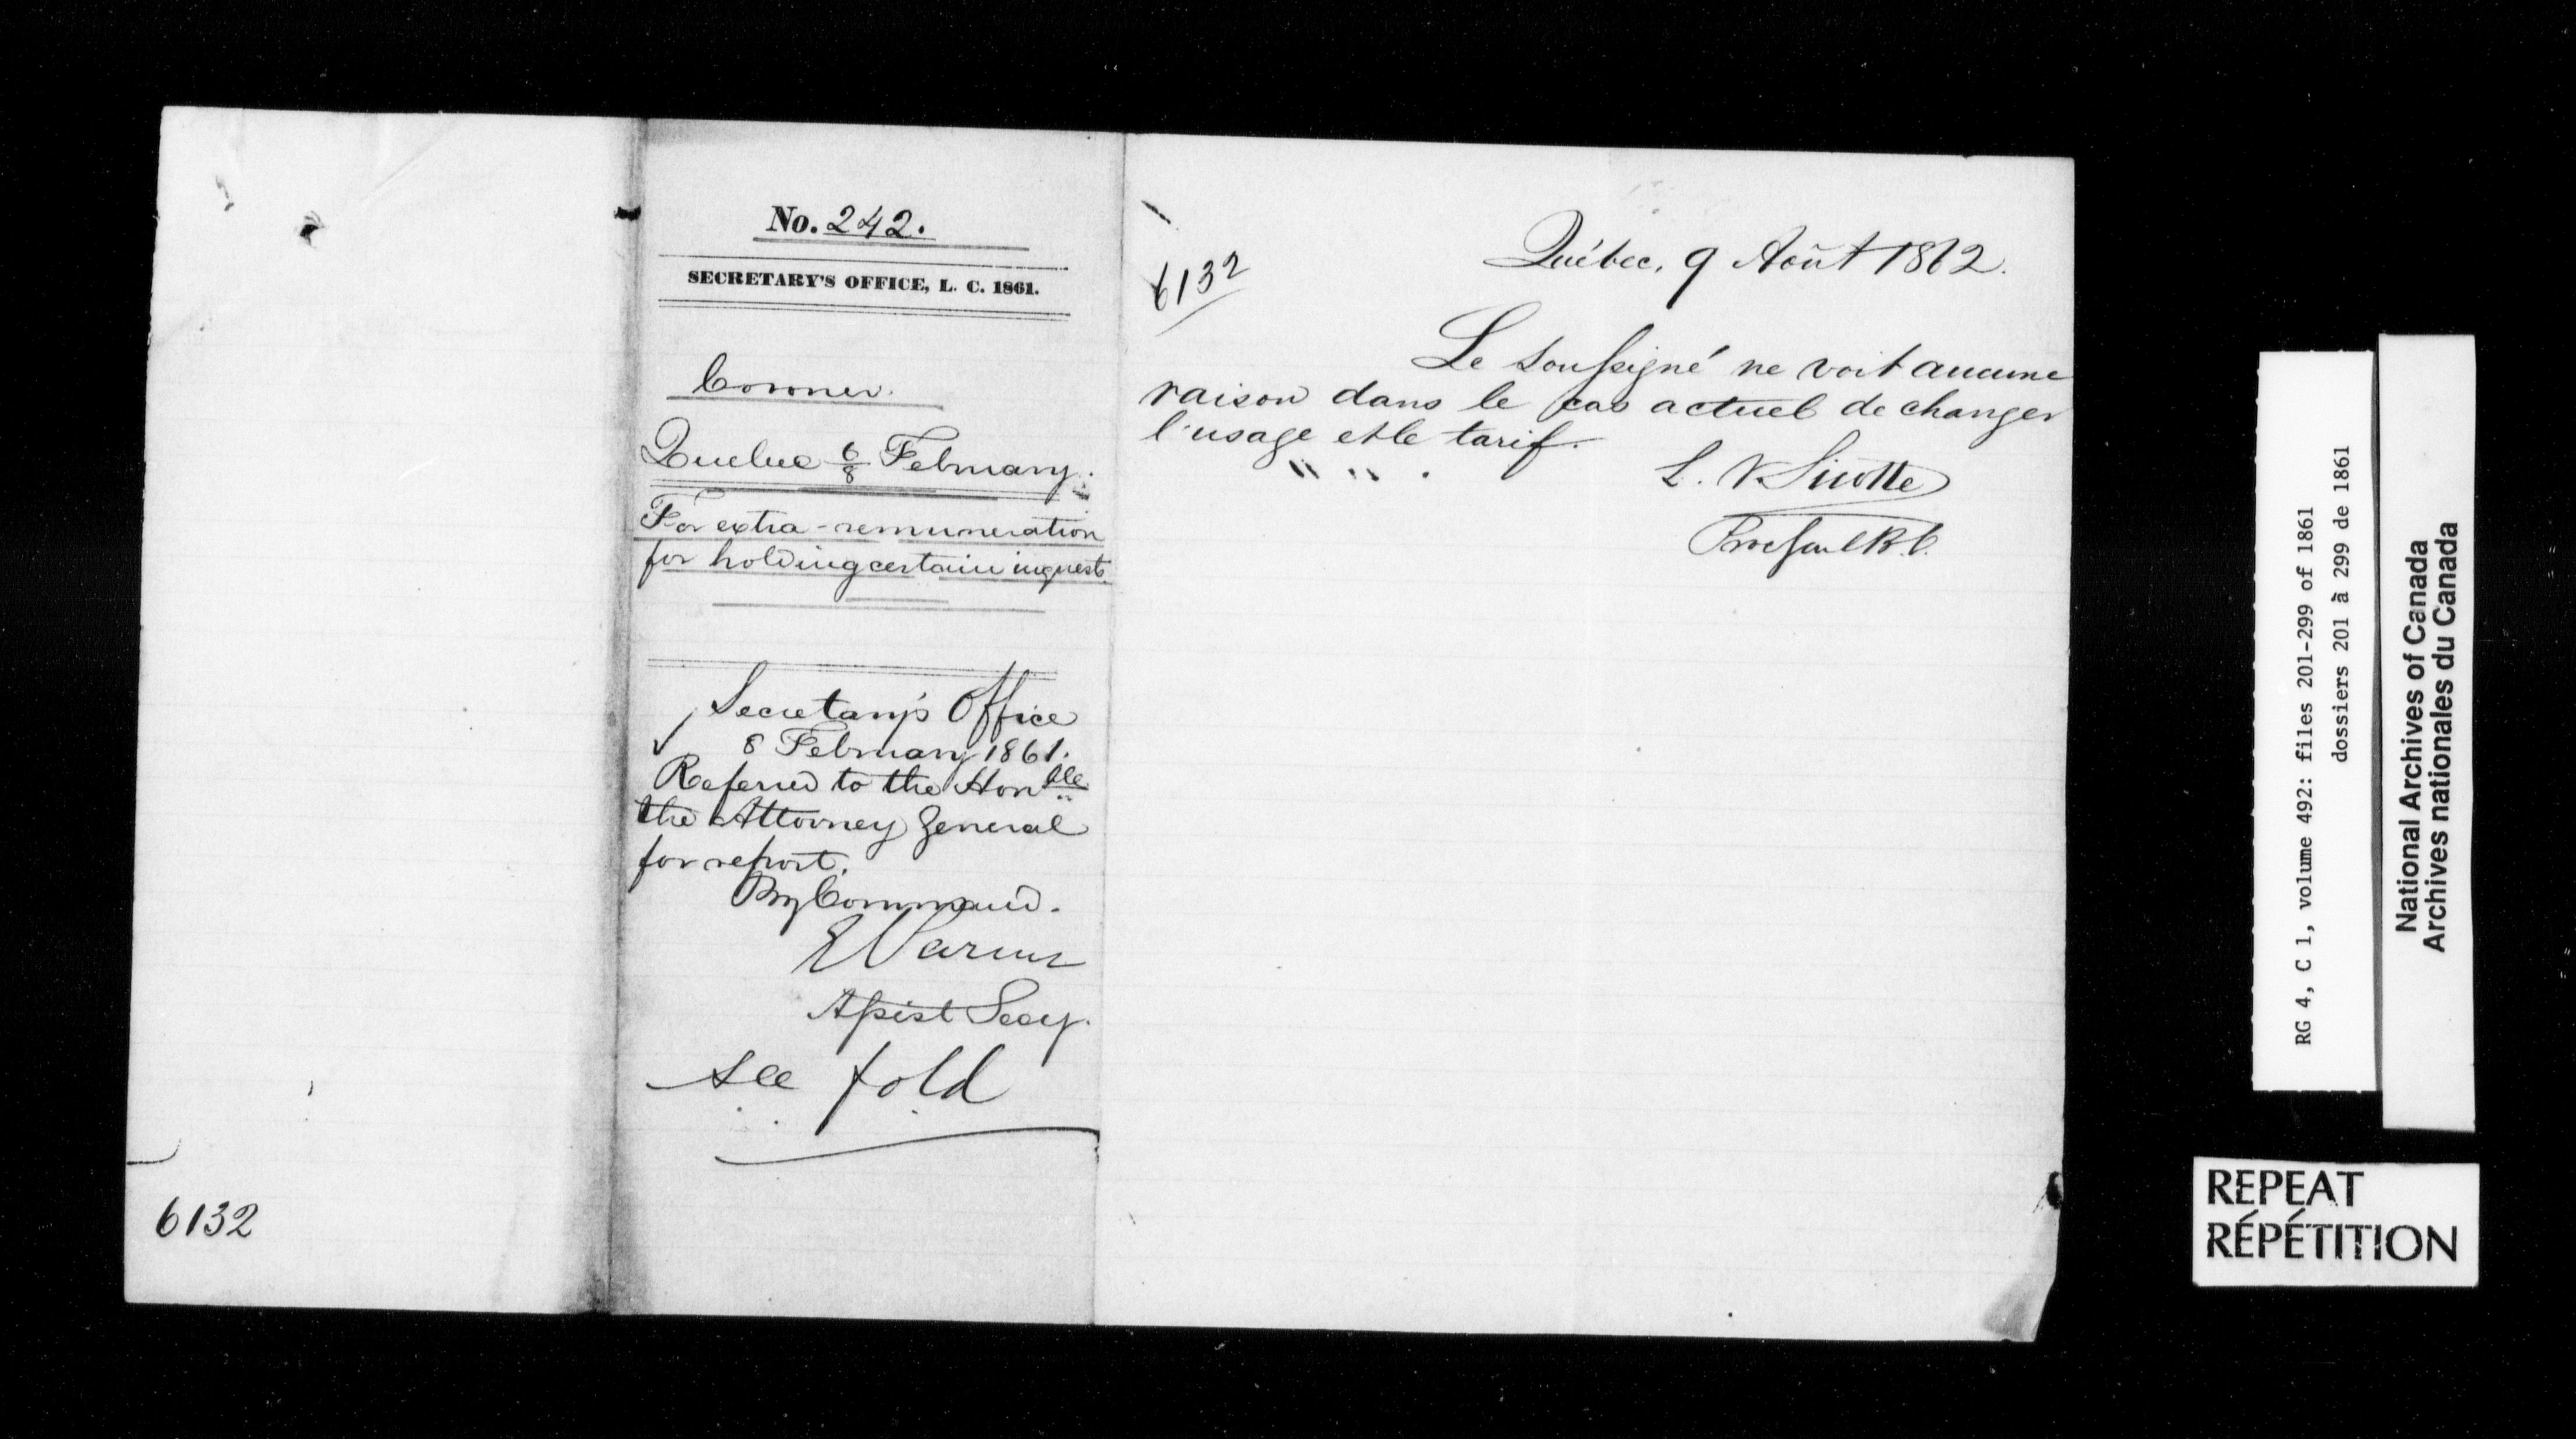 No. 242.
SECRETARY'S OFFICE, L. C. 1861.
Coroner.
Quebec 6/8 February.
For extra-remuneration
for holding certain inquests
Secretary's Office
8 February 1861.
Referred to the Honble
the Attorney General
for report.
By Command.
E Parent
Assist Secy.
see fold
6132
6132
Québec, 9 Août 1862.
Le soussigné ne voit aucune
raison dans le cas actuel de changer
l'usage et le tarif.
L. V Sicotte
RG 4, C 1, volume 492: files 201-299 of 1861
dossiers 201 à 299 de 1861
National Archives of Canada
Archives nationales du Canada
REPEAT
RÉPÉTITION